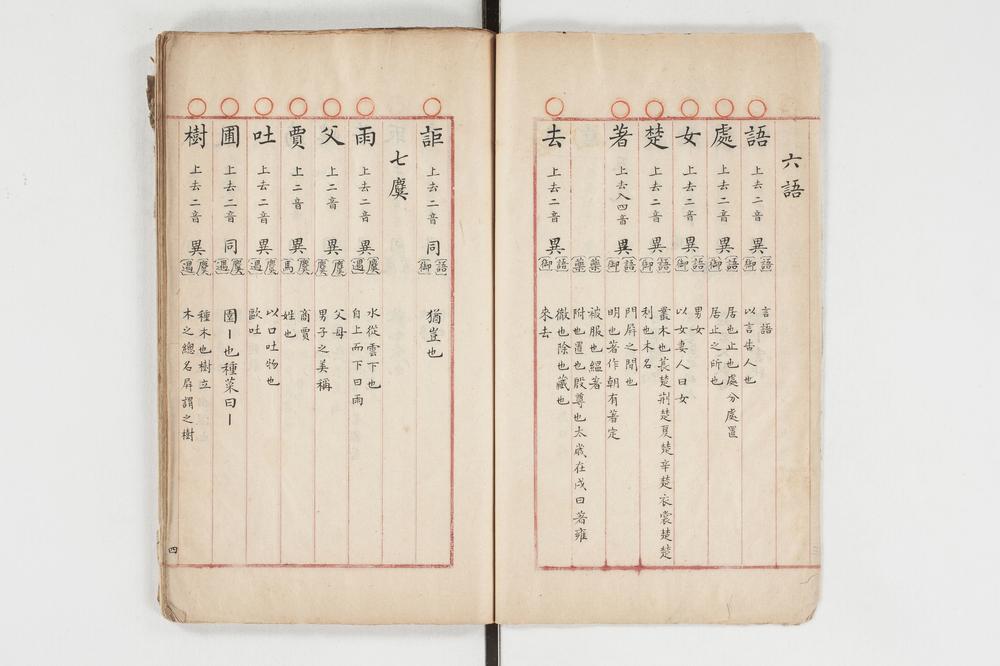 六語
語 上去二音 異 語 御 言語
以言告人也
處 上去二音 異 語 御 居也止也處分處置
居止之所也
女 上去二音 異 語 御 男女
以女妻人曰女
楚 上去二音 異 語 御 叢木也萇楚荆楚夏楚辛楚衣裳楚楚
利也木名
著 上去入四音 異 語 御 門屏之間也
明也著作朝有著定
藥 藥 被服也縕著
附也置也殷尊也太歲在戊曰著雍
去 上去二音 異 語 御 徹也除也藏也
來去
詎 上去二音 同 語 御 猶豈也
七麌
雨 上去二音 異 麌 遇 水從雲下也
自上而下曰雨
父 上二音 異 麌 麌 父母
男子之美稱
賈 上二音 異 麌 馬 商賈
姓也
吐 上去二音 異 麌 遇 以口吐物也
歐吐
圃 上去二音 同 麌 遇 園〡也種菜曰〡
樹 上去二音 異 麌 遇 種木也樹立
木之總名屏謂之樹
四